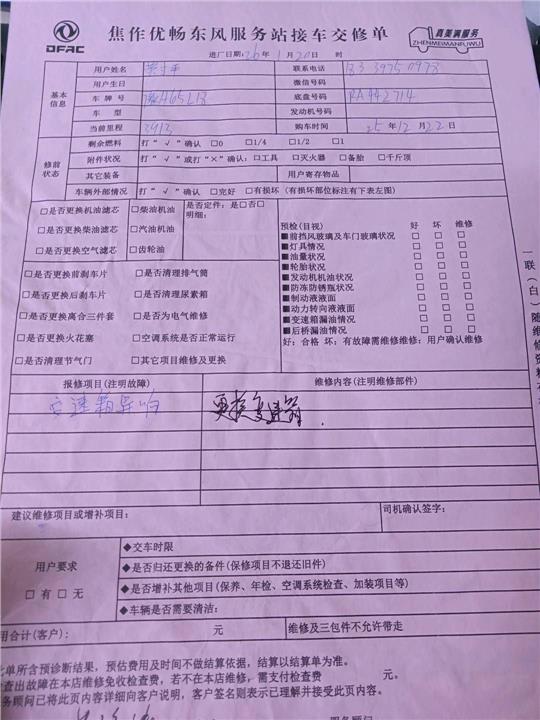 DFAC
焦作优畅东风服务站接车交修单
真美满服务
ZHENMEIMANFUWU
进厂日期：26年1月20日 时
基本信息
用户姓名 联系电话
用户生日 微信号码
车牌号 豫A65L18 底盘号码 RA442714
车型 发动机号码
当前里程 3913 购车时间 25年12月22日
修前状态
剩余燃料 打“√”确认 □0 □1/4 □1/2 □1
附件状况 打“√”或打“×”确认：□工具 □灭火器 □备胎 □千斤顶
其它装备 用户寄存物品
车辆外部情况 打“√”确认 □完好 □有损坏（有损坏部位标注有下表左图）
□是否更换机油滤芯 □柴油机油 是否定件：是□否□
明细：
□是否更换柴油滤芯 □汽油机油
□是否更换空气滤芯 □齿轮油
□是否更换前刹车片 □是否清理排气筒
□是否更换后刹车片 □是否清理尿素箱
□是否更换离合三件套 □是否为电气维修
□是否更换火花塞 □空调系统是否正常运行
□是否清理节气门 □其它项目维修及更换
预检（目视） 好 坏 维修
■前挡风玻璃及车门玻璃状况 □ □ □
■灯具情况 □ □ □
■油量状况 □ □ □
■轮胎状况 □ □ □
■发动机机油状况 □ □ □
■防冻防锈瓶状况 □ □ □
■制动液液面 □ □ □
■动力转向液液面 □ □ □
■变速箱漏油情况 □ □ □
■后桥漏油情况 □ □ □
好：合格 坏：有故障需维修维修：用户确认维修
报修项目（注明故障） 维修内容（注明维修部件）
变速箱异响 更换变速箱.
建议维修项目或增补项目： 司机确认签字：
用户要求
□有□无
◆交车时限
◆是否归还更换的备件（保修项目不退还旧件）
◆是否增补其他项目（保养、年检、空调系统检查、加装项目等）
◆车辆是否需要清洁：
用合计（客户）： 元 维修及三包件不允许带走
此单所含预诊断结果，预估费用及时间不做结算依据，结算以结算单为准。
查出故障在本店维修免收检查费，若不在本店维修，需支付检查费 元。
务顾问已将此页内容详细向客户说明，客户签名则表示已理解并接受此页内容。
一联（白）随维修资料